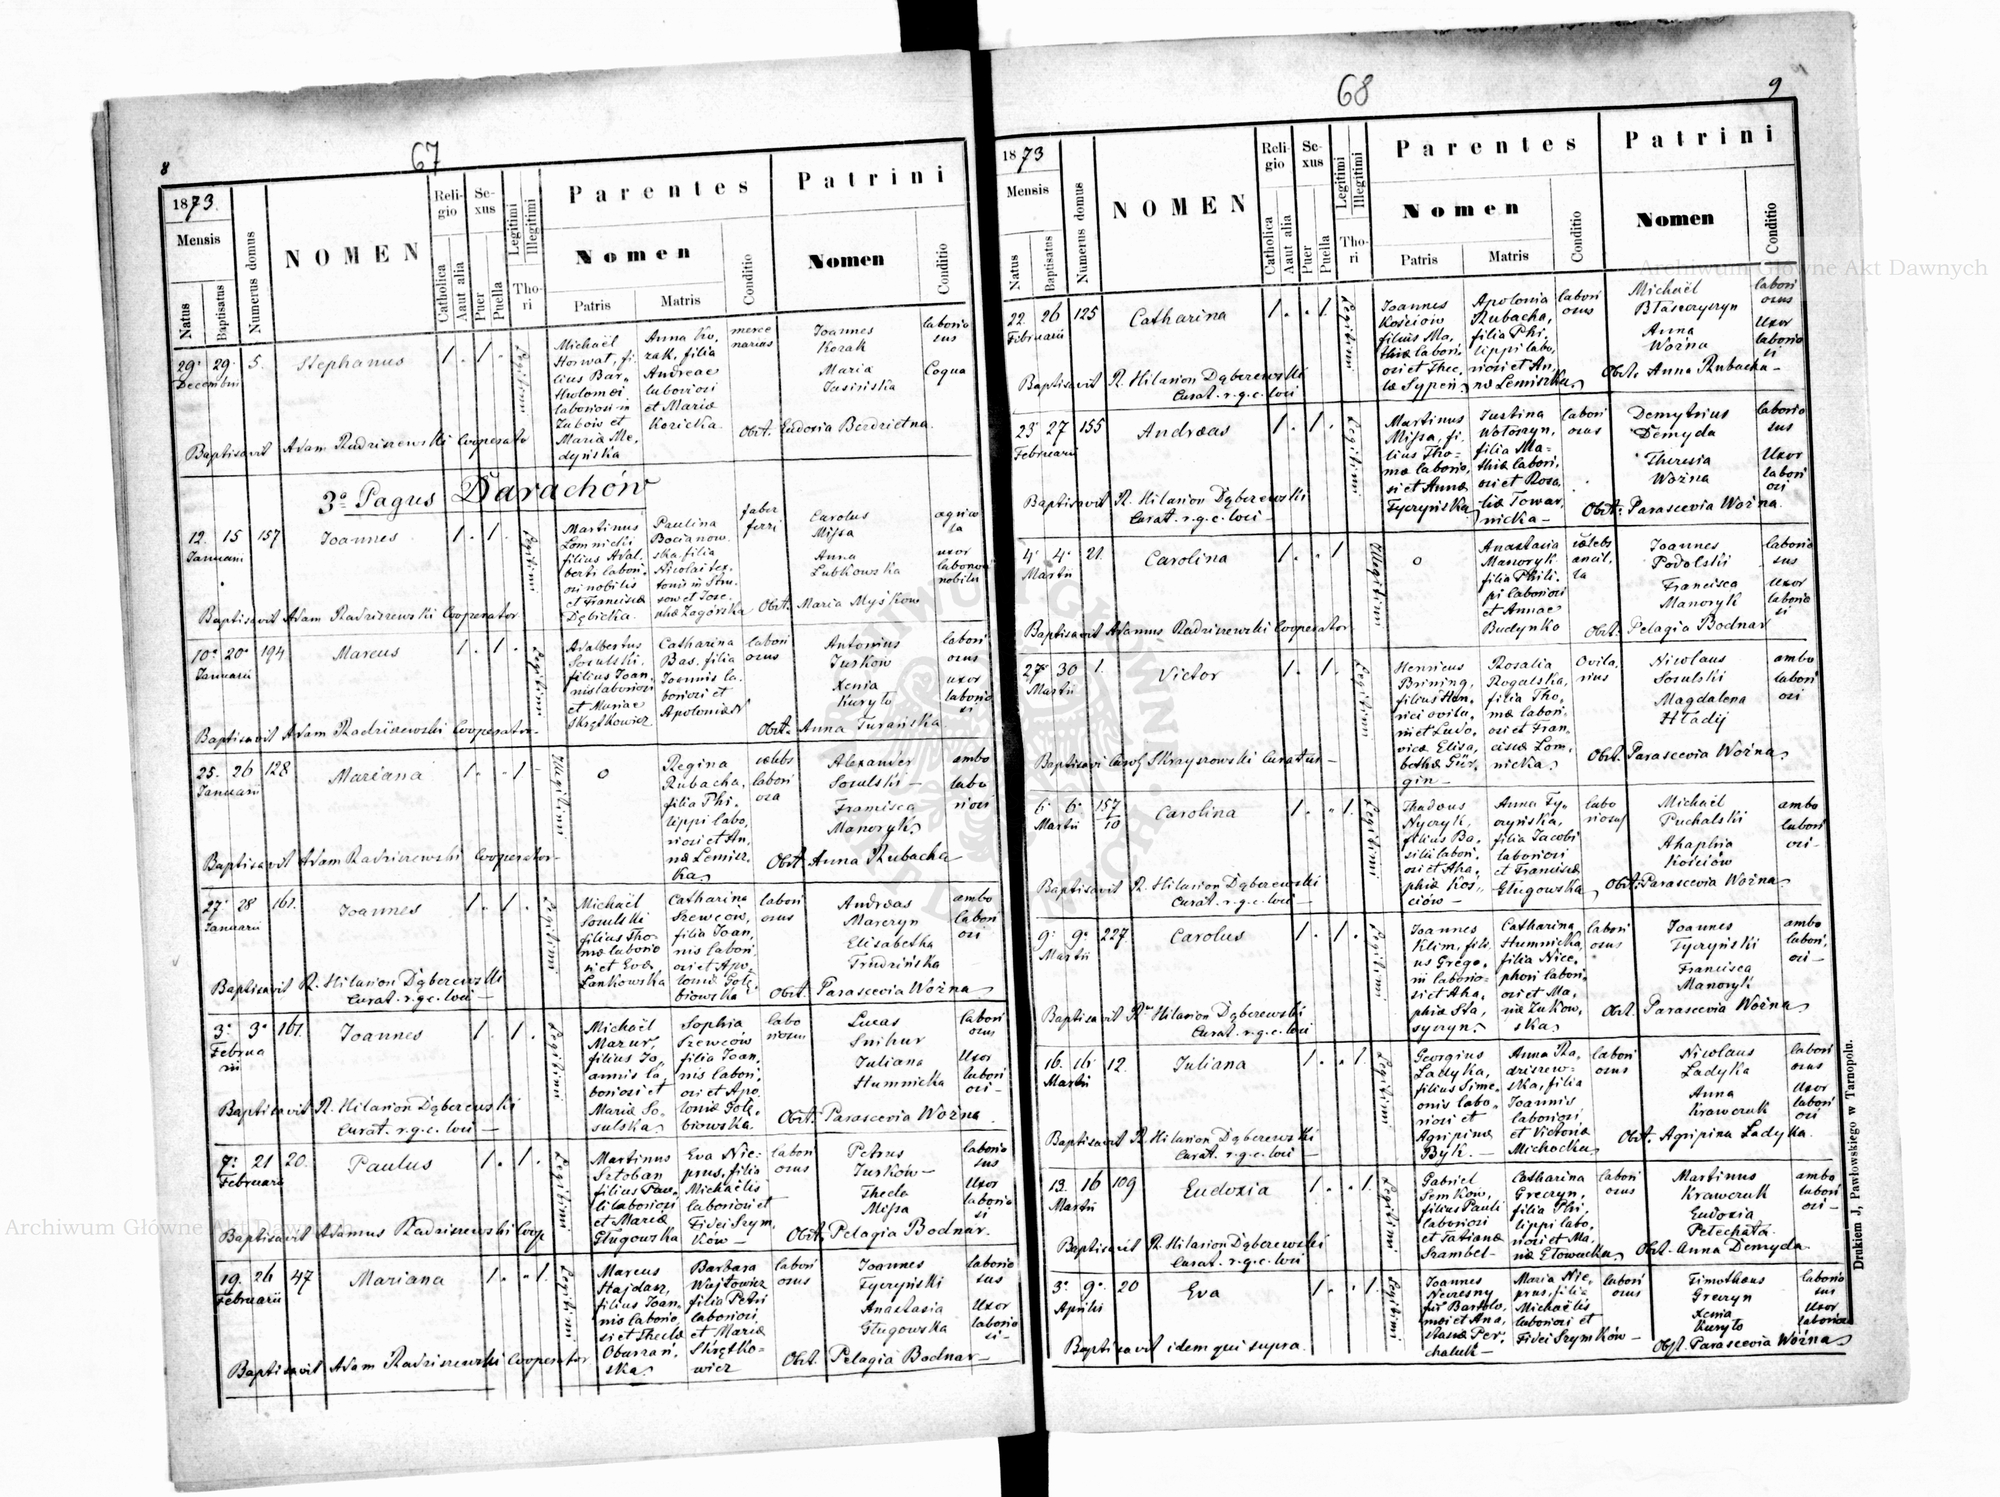 8
67
1873.
Mensis
Natus
Baptisatus
Numerus domus
NOMEN
Religio
Catholica
Aut alia
Sexus
Puer
Puella
Legitimi
Illegitimi
Thori
Parentes
Nomen
Patris
Matris
Conditio
Patrini
Nomen
Conditio
29. 29. 5. Stephanus 1 . 1 .
Decembris
Legitimi
Michaël
Horwat, fi-
lius Bar-
tholomei
laboriosi in
Zubow et
Maria Me-
dyńska
Anna Ko-
zak, filia
Andreae
laboriosi
et Mariæ
Koricka.
merce
narius
Joannes
Kozak
Maria
Jasińska
laborio
sus
Coqua
Baptisavit Adam Radziszewski Cooperator
Obst. Eudoxia Berdzietna.
3o Pagus Darachów
12. 15 157 Joannes 1 . 1 .
Januarii
Legitimi
Martinus
Łomnicki
filius Adal-
berti labori-
osi nobilis
et Franciscæ
Dębicka.
Paulina
Bocianow-
ska, filia
Nicolai tex-
toris in Stru-
sow et Jose-
phæ Zagórska
faber
ferri
Carolus
Missa
Anna
Lubkowska
agrico
la
uxor
laboriosi
nobilis
Baptisavit Adam Radziszewski Cooperator
Obst. Maria Myśkow
10. 20. 194 Marcus 1 . 1 .
Januarii
Legitimi
Adalbertus
Sosulski,
filius Joan-
nis laboriosi
et Mariae
Skrętkowicz
Catharina
Bas, filia
Joannis la-
boriosi et
Apoloniae
labori
osus
Antonius
Jurkow
Xenia
Kuryło
labori
osus
uxor
laborio
si
Baptisavit Adam Radziszewski Cooperator-
Obst. Anna Turańska
25. 26 128 Mariana 1 . . 1
Januarii
Illegitimi
o
Regina
Rubacha,
filia Phi-
lippi labo-
riosi et An-
næ Lemisz-
ka
cælebs
labori
osa
Alexander
Sosulski-
Francisca
Manoryk
ambo
labo
riosi
Baptisavit Adam Radziszewski Cooperator-
Obst. Anna Rubacha
27. 28 161. Joannes 1 . 1 .
Januarii
Legitimi
Michaël
Sosulski
filius Tho-
mæ laborio
si et Evæ
Lankowska
Catharina
Szewców,
filia Joan-
nis labori-
osi et Apo-
loniæ Gołę-
biowska
labori
osus
Andreas
Marcryn
Elisabetha
Trudzińska
ambo
labori
osi
Baptisavit R. Hilarion Dąberewski
Curat. r.g.c. loci-
Obst. Parascevia Woźna
3. 3. 161. Joannes 1 . 1 .
Februa
rii
Legitimi
Michaël
Mazur,
filius Jo-
annis la-
boriosi et
Mariæ So-
sulska
Sophia
Szewców
filia Joan-
nis labori-
osi et Apo-
loniæ Gołę-
biowska.
labo
riosus
Lucas
Snihur
Juliana
Humnicka
labori
osus
Uxor
labori
osi-
Baptisavit R. Hilarion Dąberewski
Curat. r.g.c. loci-
Obst. Parascevia Woźna
7. 21 20. Paulus 1 . 1 .
Februarii
Legitimi
Martinus
Sztoban
filius Pau-
li laboriosi
et Mariæ
Gługowska
Eva Nie-
prus, filia
Michaëlis
laboriosi et
Fidei Szym-
ków-
labori
osus
Petrus
Jurków-
Thecla
Missa
laborio
sus
Uxor
laborio
si
Baptisavit Adamus Radziszewski Coop
Obst. Pelagia Bodnar.
19. 26 47 Mariana 1 . . 1.
Februarii
Legitimi
Marcus
Hajdasz,
filius Joan-
nis laborio-
si et Theclæ
Oburzań-
ska
Barbara
Wojtowicz
filia Petri
laboriosi
et Mariæ
Skrętko-
wicz
labori
osus
Joannes
Tyczyński
Anastasia
Gługowska
laborio
sus
Uxor
laborio
si-
Baptisavit Adam Radziszewski Cooperator
Obst. Pelagia Bodnar-
68
9
1873
Mensis
Natus
Baptisatus
Numerus domus
NOMEN
Religio
Catholica
Aaut alia
Sexus
Puer
Puella
Legitimi
Illegitimi
Thori
Parentes
Nomen
Patris
Matris
Conditio
Patrini
Nomen
Conditio
22. 26 125 Catharina 1 . . 1.
Februarii
Legitimi
Joannes
Kościow
filius Ma-
thiæ labori-
osi et Thec-
læ Sypeń
Apolonia
Rubacha,
filia Phi-
lippi labo-
riosi et An-
næ Lemiszka
labori
osus
Michaël
Błaszczyszyn
Anna
Woźna
labori
osus
Uxor
laborio
si
Baptisavit R. Hilarion Dąberewski
Curat. r.g.c. loci
Obst. Anna Rubacha-
23 27 155 Andreas 1 . 1 .
Februarii
Legitimi
Martinus
Missa, fi-
lius Tho-
mæ laborio-
si et Annæ
Tyczyńska
Justina
Wołoszyn,
filia Ma-
thiæ labori-
osi et Rosa-
liæ Towar-
nicka-
labori
osus
Demytrius
Demyda
Theresia
Woźna
laborio
sus
Uxor
labori
osi
Baptisavit R. Hilarion Dąberewski
Curat. r.g.c. loci-
Obst. Parascevia Woźna.
4. 4. 21. Carolina 1 . . 1
Martii
Illegitimi
o
Anastasia
Manoryk
filia Phili-
pi laboriosi
et Annae
Budynko
cælebs
ancil-
la
Joannes
Podolski
Francisca
Manoryk
laborio
sus
Uxor
laborio
si
Baptisavit Adamus Radziszewski Cooperator
Obst. Pelagia Bodnar
27. 30 1. Victor 1 . 1 .
Martii
Legitimi
Henricus
Brining,
filius Hen-
rici ovila-
rii et Ludo-
vicæ Elisa-
bethæ Für-
gin-
Rosalia
Rogalska,
filia Tho-
mæ labori-
osi et Fran-
ciscæ Łom-
nicka
Ovila-
rius
Nicolaus
Sosulski
Magdalena
Hładij
ambo
labori
osi
Obst. Parascevia Woźna
6. 6. 157/10 Carolina 1 . . 1.
Martii
Legitimi
Thadeus
Nyczyk,
filius Ba-
silii labori-
osi et Aha-
phiæ Kos-
ciów-
Anna Ty-
czyńska,
filia Jacobi
laboriosi
et Franciscæ
Gługowska
labo
riosus
Michaël
Puchalski
Ahaphia
Kościów
ambo
labori
osi-
Baptisavit R. Hilarion Dąberewski
Curat. r.g.c. loci-
Obst. Parascevia Woźna
9. 9. 227. Carolus 1 . 1 .
Martii
Legitimi
Joannes
Klim, fili-
us Grego-
rii laborio-
si et Aha-
phiæ Sta-
syczyn
Catharina
Humnicka,
filia Nice-
phori labori-
osi et Ma-
riæ Zukow-
ska
labori
osus
Joannes
Tyczyński
Francisca
Manoryk
ambo
labori-
osi-
Baptisavit R. Hilarion Dąberewski
Curat. r.g.c. loci
Obst. Parascevia Woźna
16. 16 12. Juliana 1 . . 1.
Martii
Legitimi
Georgius
Ladyka,
filius Sime-
onis labo-
riosi et
Agripinæ
Byk.-
Anna Ra-
dziszew-
ska, filia
Joannis
laboriosi
et Victoriæ
Michocka
labori
osus
Nicolaus
Ladyka
Anna
Krawczuk
labori
osus
Uxor
labori
osi
Baptisavit R. Hilarion Dąberewski
Curat. r.g.c. loci-
Obst. Agripina Ladyka.
13. 16 109 Eudoxia 1 . . 1.
Martii
Legitimi
Gabriel
Semków,
filius Pauli
laboriosi
et Tatianæ
Szambel-
Catharina
Greczyn,
filia Phi-
lippi labo-
riosi et Ma-
riæ Głowacka
labori
osus
Martinus
Krawczuk
Eudoxia
Pełechata.
ambo
labori
osi-
Baptisavit R. Hilarion Dąberewski
Curat. r.g.c. loci
Obst. Anna Demyda
3. 9. 20 Eva 1 . . 1.
Aprilis
Legitimi
Joannes
Neczesny
fil. Bartolo-
mei et Ana-
stasiæ Per-
chaluk-
Maria Nie-
prus, filia
Michaëlis
laboriosi et
Fidei Szymków-
labori
osus
Timotheus
Greczyn
Xenia
Kuryło
laborio
sus
Uxor
laboriosi
Baptisavit idem qui supra.
Obst. Parascevia Woźna
Drukiem J. Pawłowskiego w Tarnopolu.
Archiwum Główne Akt Dawnych
Archiwum Główne Akt Dawnych